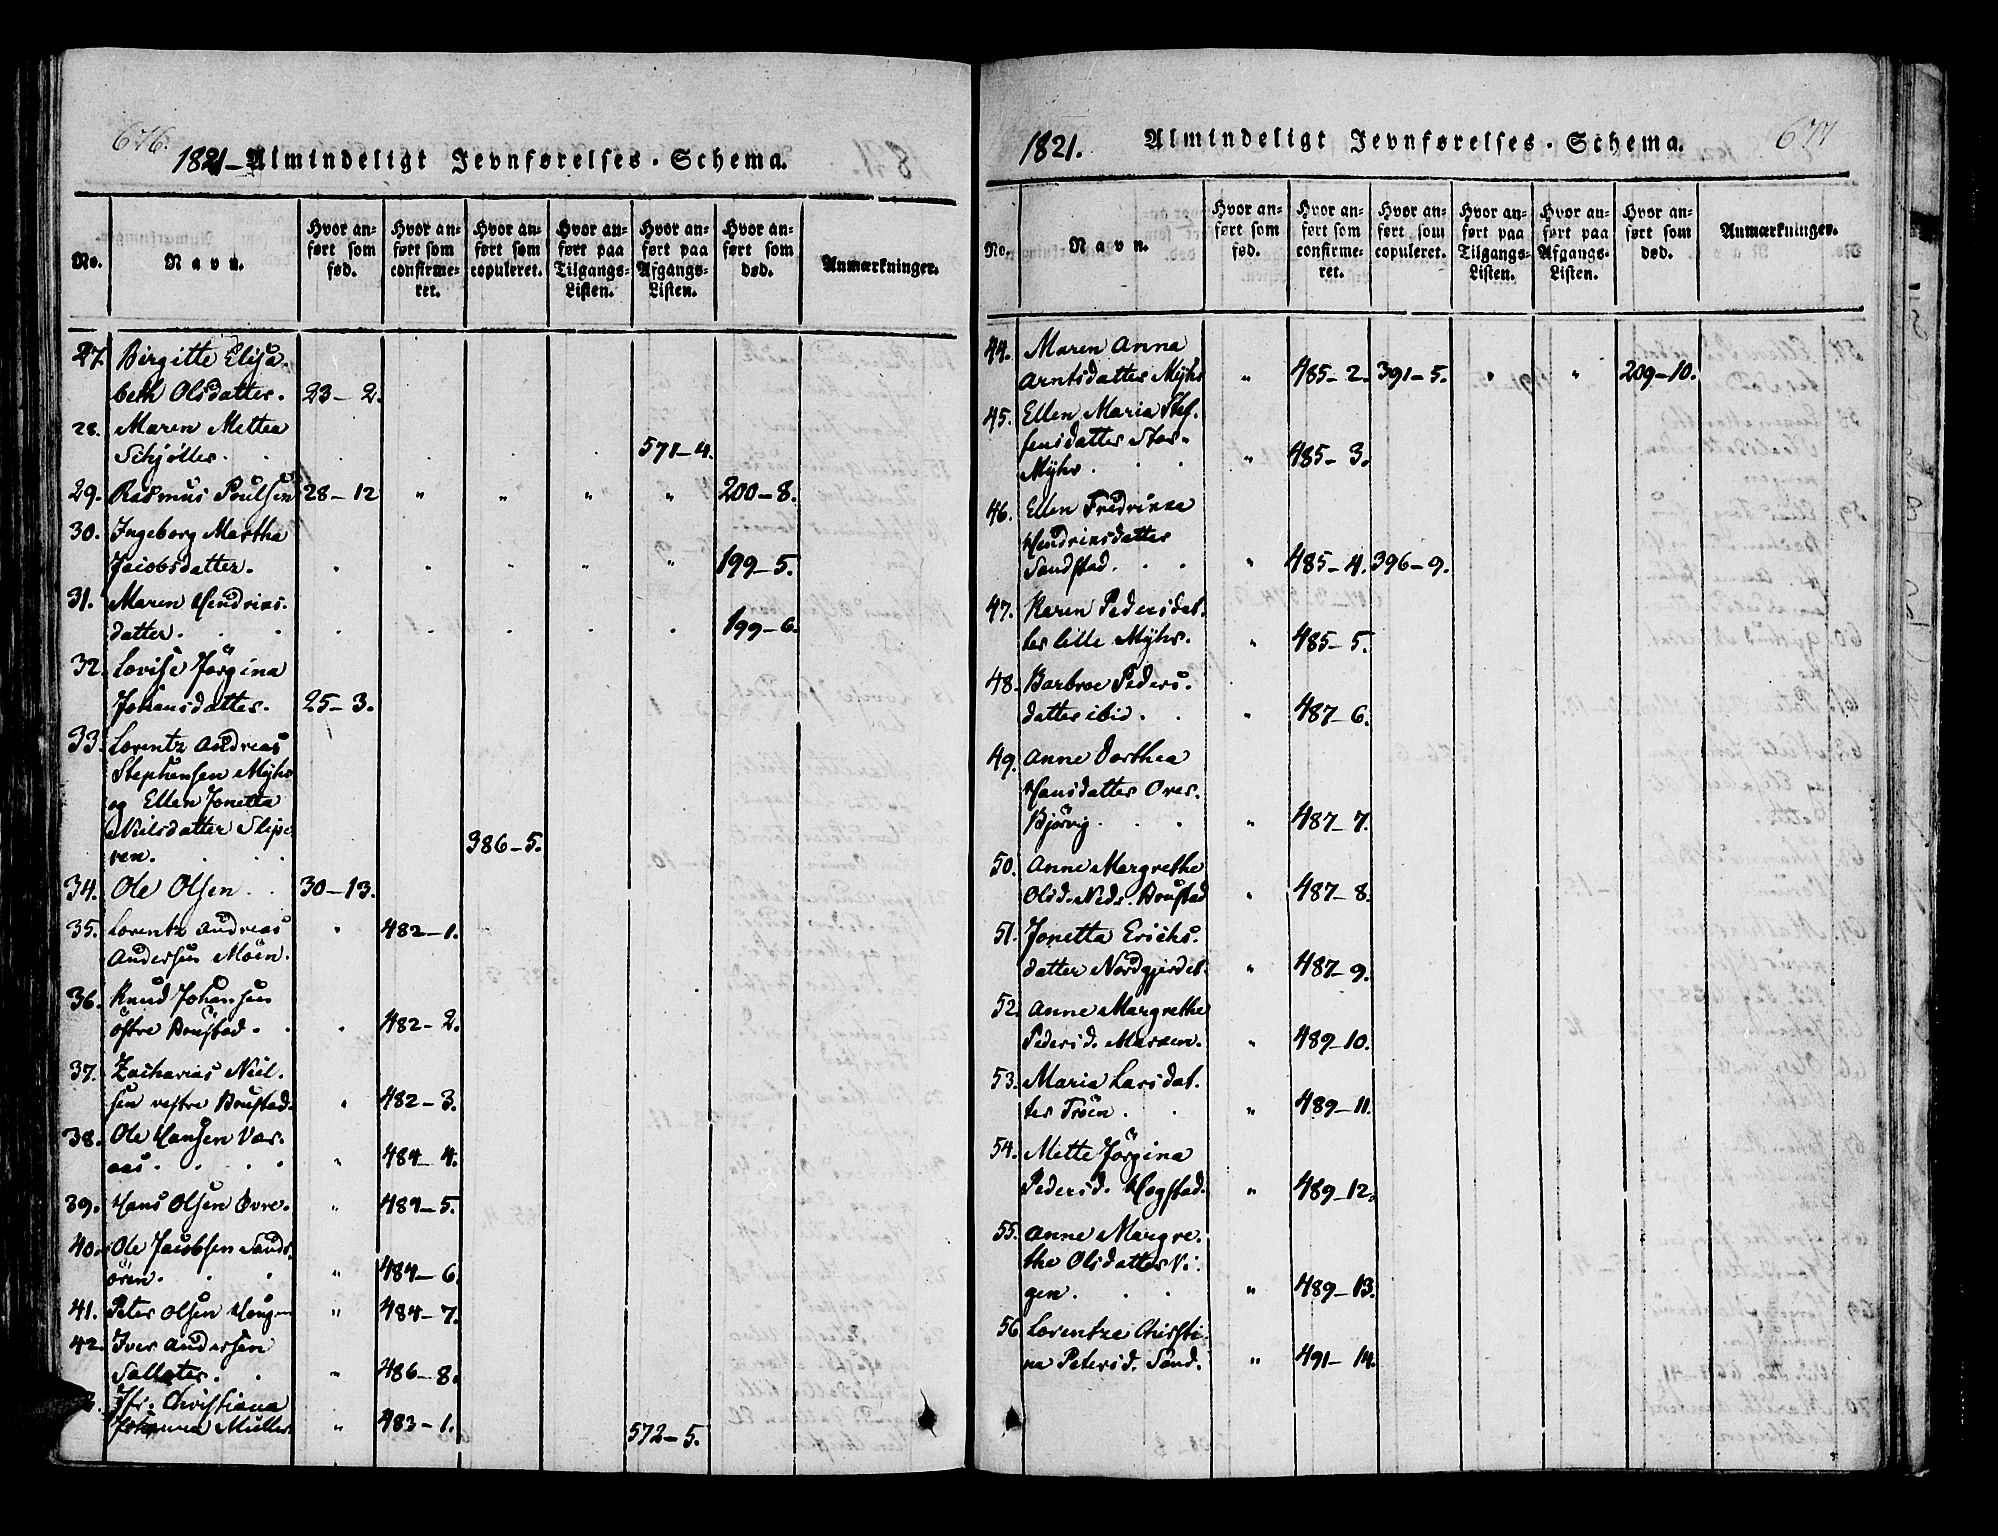 676.
1821 – Almindeligt Jevnførelses-Schema.
No.
Navn.
Hvor anført som fød.
Hvor anført som confirmeret.
Hvor anført som copuleret.
Hvor anført paa Tilgangs-Listen.
Hvor anført paa Afgangs-Listen.
Hvor anført som død.
Anmærkninger.
27. Birgitte Elisa-
beth Olsdatter. 23–2.
28. Maren Mettea
Schjøller. 571–4.
29. Rasmus Poulsen 28–12 " " " " 200–8.
30. Ingeborg Martha
Jacobsdatter. 199–5.
31. Maren Hendrics-
datter. 199–6.
32. Lovise Jørgina
Johansdatter. 25–3.
33. Lorentz Andreas
Stephensen Myhr
og Ellen Jonetta
Nielsdatter Slipe-
ren. 386–5.
34. Ole Olsen 30–13.
35. Lorentz Andreas " 482–1.
Andersen Möen.
36. Knud Johansen
östre Brustad. " 482–2.
37. Zacharias Niel-
sen vestre Brustad. " 482–3.
38. Ole Hansen Var-
aas. " 484–4.
39. Hans Olsen Övre. " 484–5.
40. Ole Jacobsen Sands-
ören. " 484–6.
41. Peter Olsen Haugen " 484–7.
42. Iver Andersen
Salater. " 486–8.
Jfr. Christiana
Johanna Müller " 483–1. 572–5.
1821. Almindeligt Jevnførelses-Schema. 677
No.
Navn.
Hvor anført som fød.
Hvor anført som confirmeret.
Hvor anført som copuleret.
Hvor anført paa Tilgangs-Listen.
Hvor anført paa Afgangs-Listen.
Hvor anført som død.
Anmærkninger.
44. Maren Anna
Arntsdatter Myhr " 485–2. 391–5. " " 209–10.
45. Ellen Maria Stef-
fensdatter Stor-
Myhr. " 485–3.
46. Ellen Fredrikke
Hendriksdatter
Sandstad. " 485–4. 396–9.
47. Karen Pedersdat-
ter lille Myhr. " 485–5.
48. Barbroe Peders-
datter ibid. " 487–6.
49. Anne Dorthea
Hansdatter Over-
Bjørvig. " 487–7.
50. Anne Margrethe
Olsd. Neds. Brustad " 487–8.
51. Jonetta Erichs-
datter Nordgjerdet. " 487–9.
52. Anne Margrethe
Pedersd. " 489–10.
53. Maria Larsdat-
ter Tröen. " 489–11.
54. Mette Jörgina
Pedersd. Hogstad. " 489–12.
55. Anne Margre-
the Olsdatter Vi-
gen. " 489–13.
56. Lorentze Christi-
na Petersd. Sand. " 491–14.